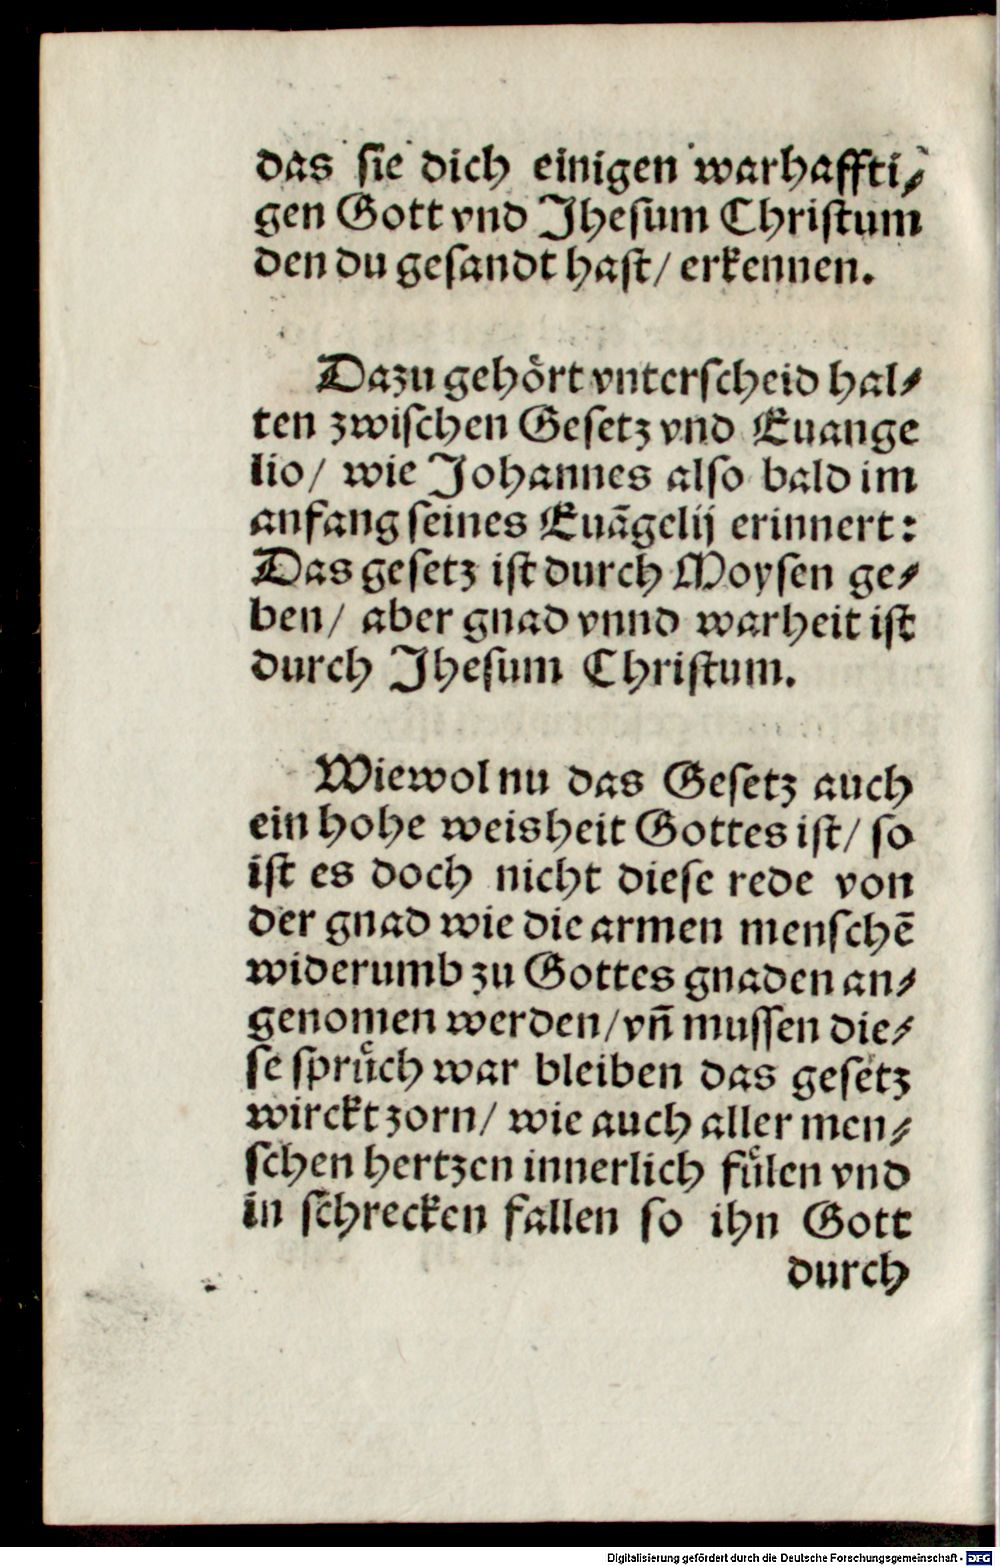 das sie dich einigen warhaffti⸗
gen Gott vnd Jhesum Christum
den du gesandt hast/ erkennen.
Dazu gehoͤrt vnterscheid hal⸗
ten zwischen Gesetz vnd Euange
lio/ wie Johannes also bald im
anfang seines Euãgelij erinnert:
Das gesetz ist durch Moysen ge⸗
ben/ aber gnad vnnd warheit ist
durch Jhesum Christum.
Wiewol nu das Gesetz auch
ein hohe weisheit Gottes ist/ so
ist es doch nicht diese rede von
der gnad wie die armen menschẽ
widerumb zu Gottes gnaden an⸗
genomen werden/ vñ mussen die⸗
se spruͤch war bleiben das gesetz
wirckt zorn/ wie auch aller men⸗
schen hertzen innerlich fuͤlen vnd
in schrecken fallen so ihn Gott
durch
Digitalisierung gefördert durch die Deutsche Forschungsgemeinschaft - DFG